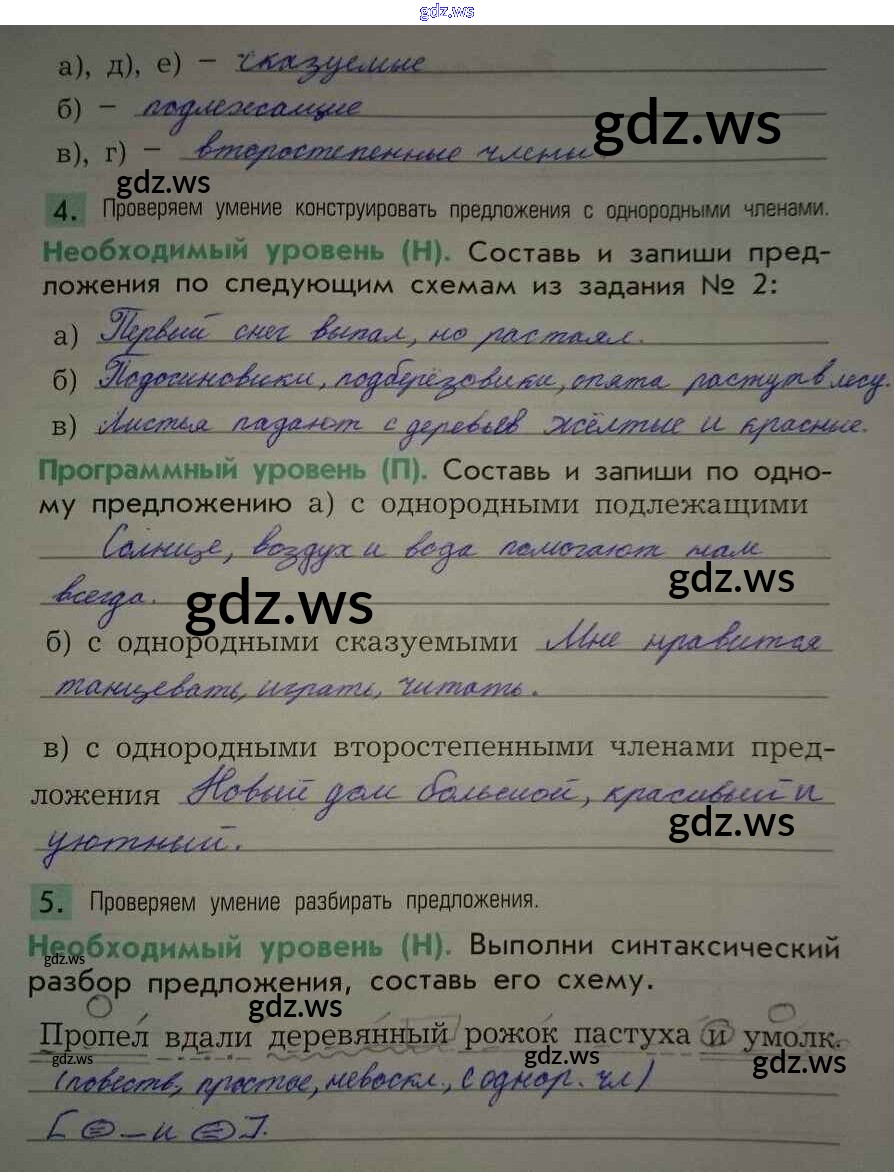 gdz.ws
а), д), е) – сказуемые
б) – подлежащие
gdz.ws
в), г) – второстепенные члены
gdz.ws
4. Проверяем умение конструировать предложения с однородными членами.
Необходимый уровень (Н). Составь и запиши пред-
ложения по следующим схемам из задания № 2:
а) Первый снег выпал, но растаял.
б) Подосиновики, подберёзовики, опята растут в лесу.
в) Листья падают с деревьев жёлтые и красные.
Программный уровень (П). Составь и запиши по одно-
му предложению а) с однородными подлежащими
Солнце, воздух и вода помогают нам
gdz.ws
всегда.
gdz.ws
б) с однородными сказуемыми Мне нравится
танцевать, играть, читать.
в) с однородными второстепенными членами пред-
ложения Новый дом большой, красивый и
gdz.ws
уютный.
5. Проверяем умение разбирать предложения.
Необходимый уровень (Н). Выполни синтаксический
gdz.ws
разбор предложения, составь его схему.
gdz.ws
Пропел вдали деревянный рожок пастуха и умолк.
gdz.ws
gdz.ws
gdz.ws
(повеств, простое, невоскл., с однор. чл)
[ – и ].